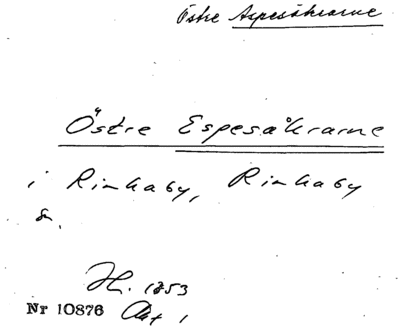 Östre Aspesåkrarne
Östre Espesåkrarne
i Rinkaby, Rinkaby
sn.
H. 1853
Nr 10876 Akt 1